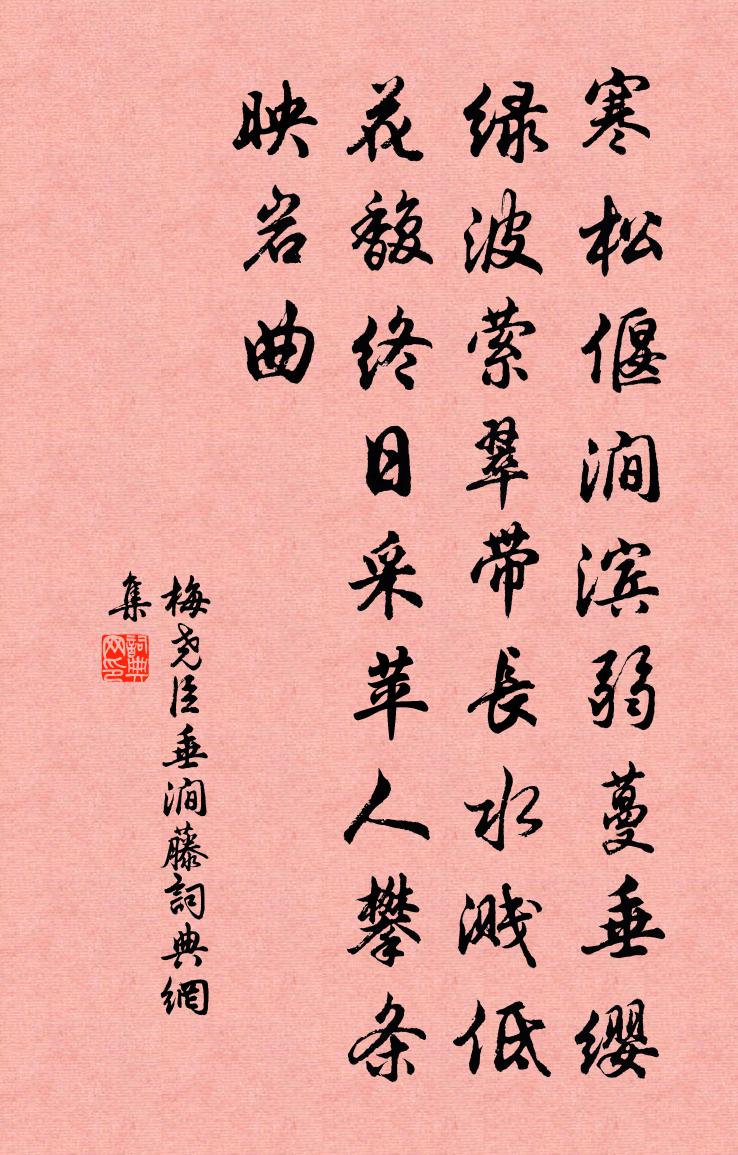 寒松偃涧滨弱蔓垂缨
绿波萦翠带长水溅低
花馥终日采苹人攀条
映岩曲
梅尧臣垂涧藤詞典網
集
詞典网印